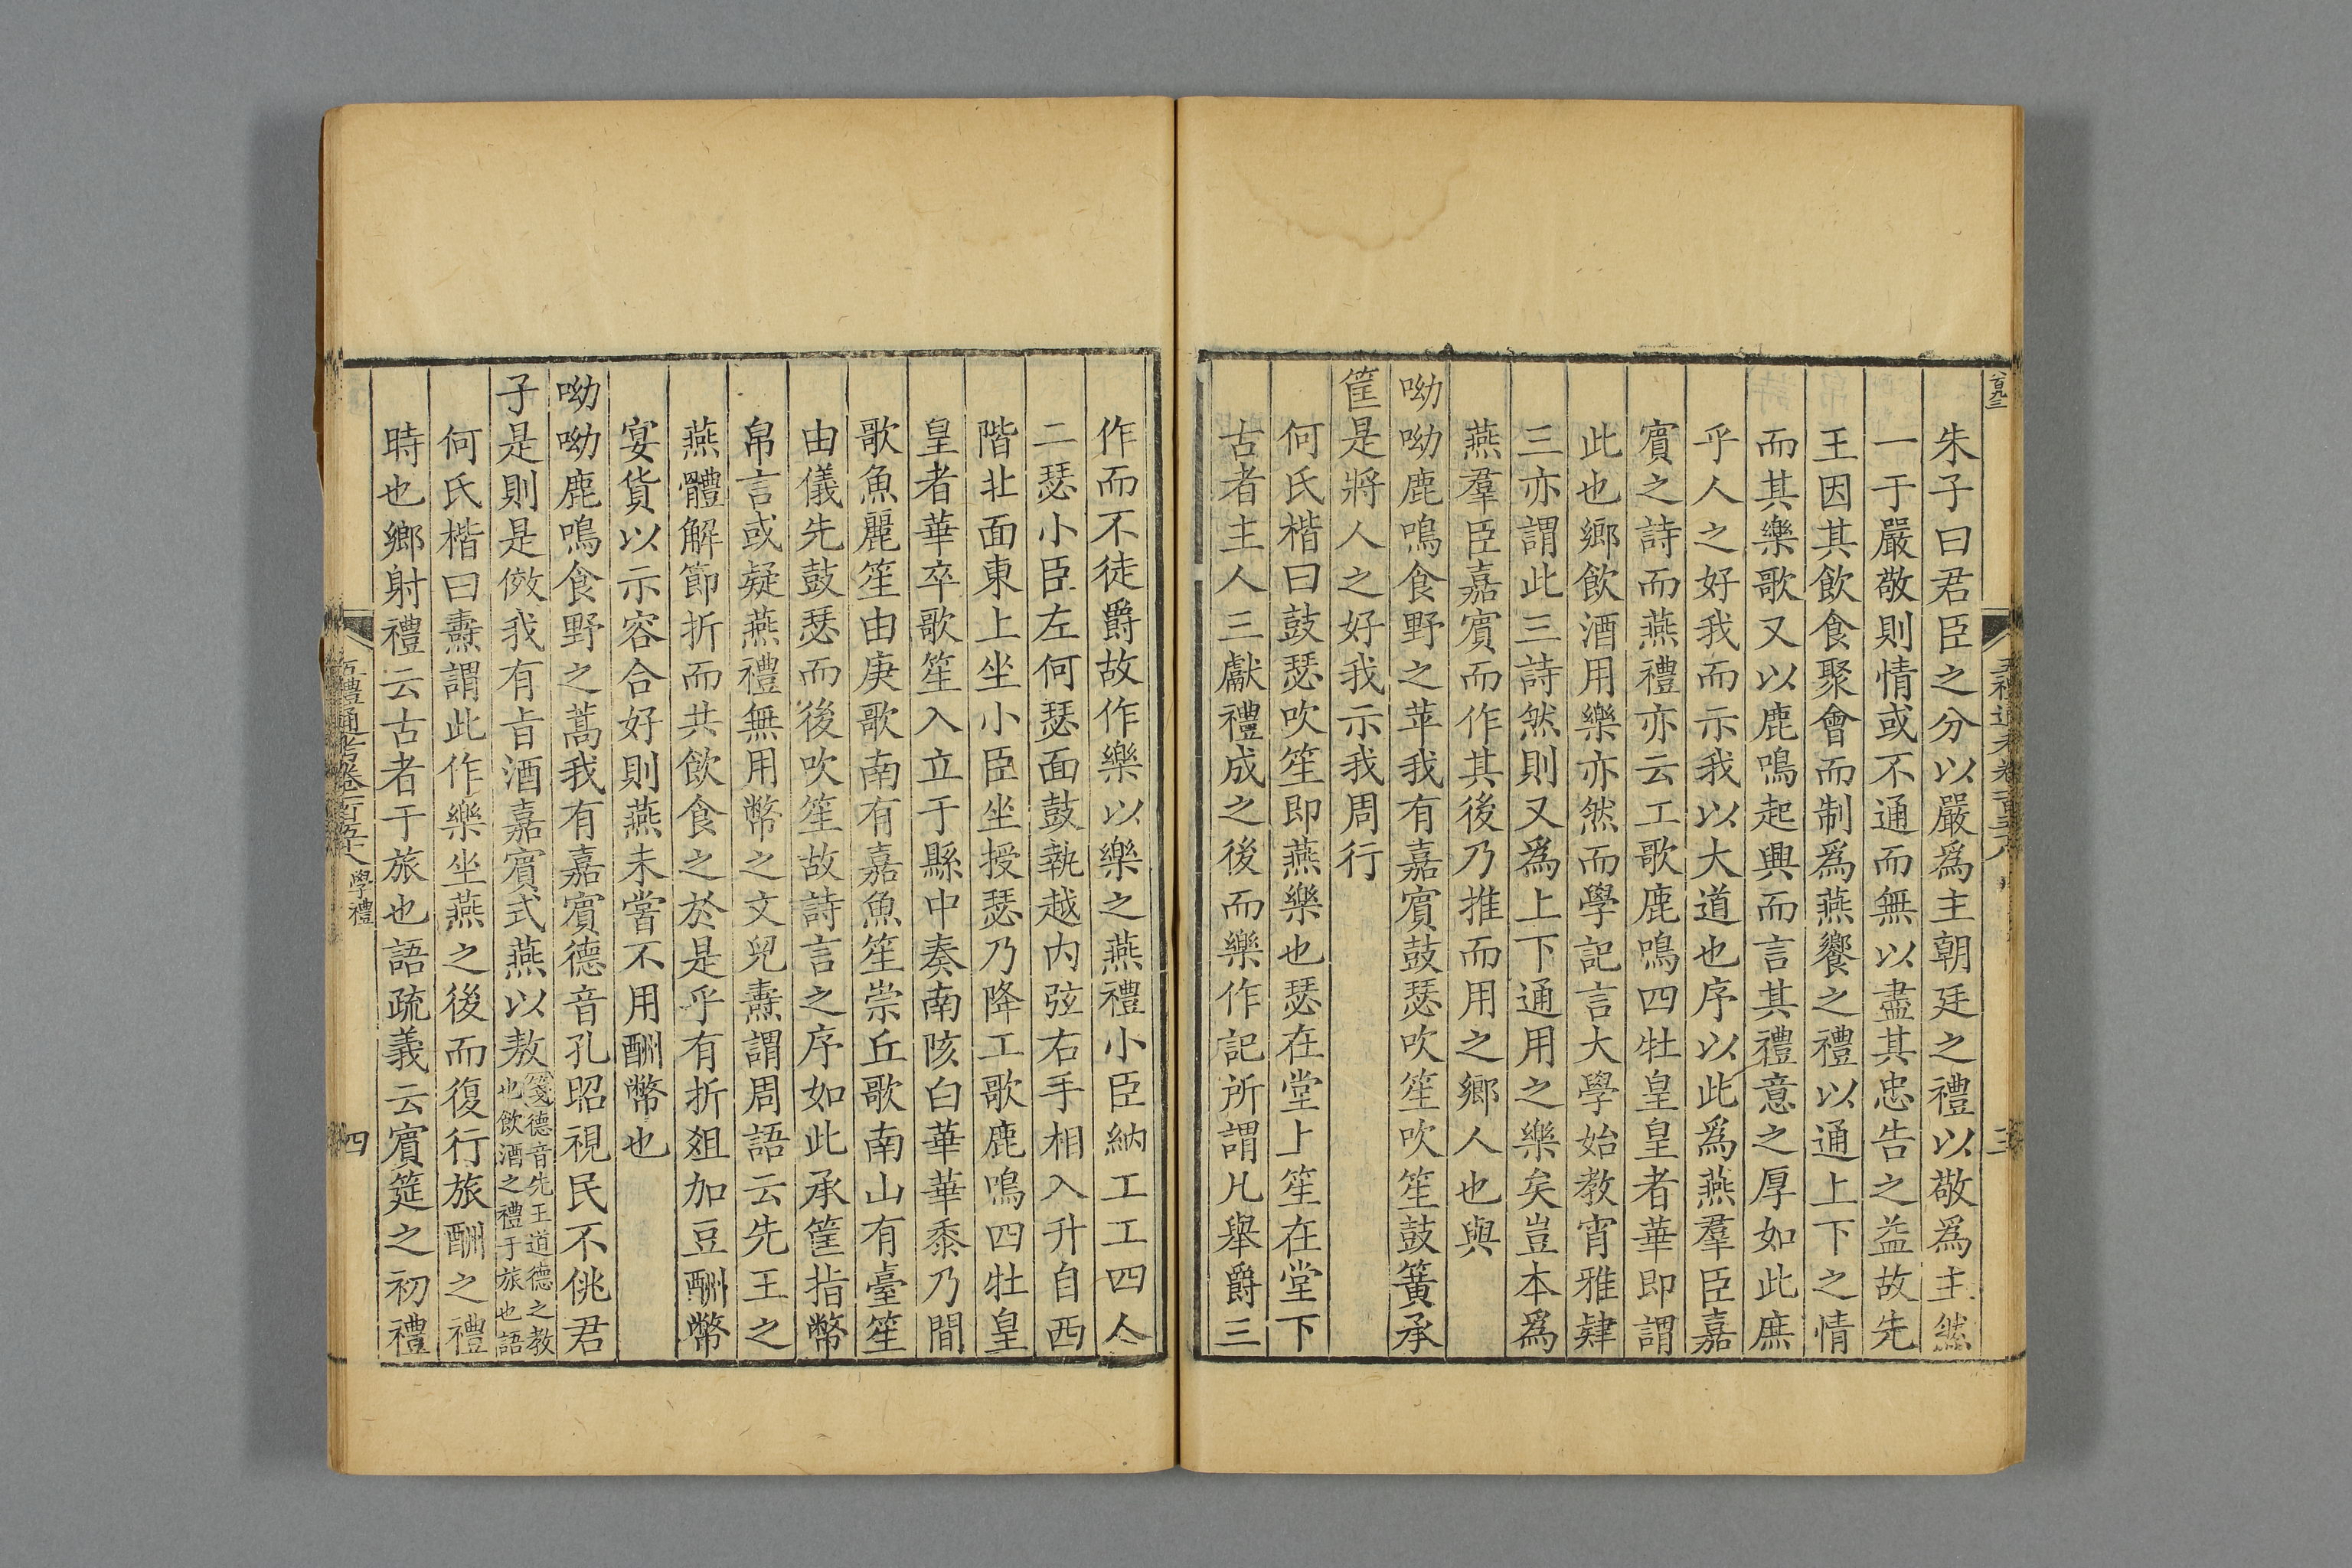 朱子曰君臣之分以嚴爲主朝廷之禮以敬爲主然
一于嚴敬則情或不通而無以盡其忠告之益故先
王因其飲食聚會而制爲燕饗之禮以通上下之情
而其樂歌又以鹿鳴起興而言其禮意之厚如此庶
乎人之好我而示我以大道也序以此爲燕羣臣嘉
賓之詩而燕禮亦云工歌鹿鳴四牡皇皇者華即謂
此也鄉飲酒用樂亦然而學記言大學始教宵雅肄
三亦謂此三詩然則又爲上下通用之樂矣豈本爲
燕羣臣嘉賓而作其後乃推而用之鄉人也與
呦呦鹿鳴食野之苹我有嘉賓鼓瑟吹笙吹笙鼓簧承
筐是將人之好我示我周行
何氏楷曰鼓瑟吹笙即燕樂也瑟在堂上笙在堂下
古者主人三獻禮成之後而樂作記所謂凡舉爵三
作而不徒爵故作樂以樂之燕禮小臣納工工四人
二瑟小臣左何瑟面鼓執越内弦右手相入升自西
階北面東上坐小臣坐授瑟乃降工歌鹿鳴四牡皇
皇者華卒歌笙入立于縣中奏南陔白華華黍乃間
歌魚麗笙由庚歌南有嘉魚笙崇丘歌南山有臺笙
由儀先鼓瑟而後吹笙故詩言之序如此承筐指幣
帛言或疑燕禮無用幣之文皃燾謂周語云先王之
燕體解節折而共飲食之於是乎有折俎加豆酬幣
宴貨以示容合好則燕未嘗不用酬幣也
呦呦鹿鳴食野之蒿我有嘉賓德音孔昭視民不恌君
子是則是傚我有旨酒嘉賓式燕以敖箋德音先王道德之教
也飲酒之禮于旅也語
何氏楷曰燾謂此作樂坐燕之後而復行旅酬之禮
時也鄉射禮云古者于旅也語疏義云賓筵之初禮
五禮通考卷一百五十八 學禮
四